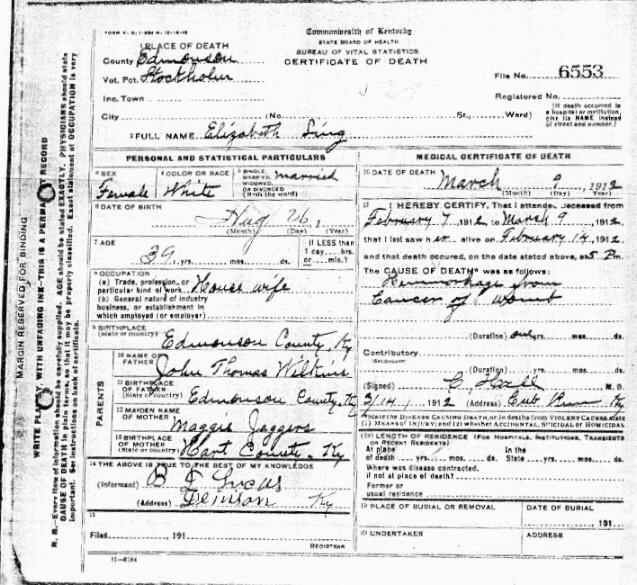 Commonwealth of Kentucky
STATE BOARD OF HEALTH
BUREAU OF VITAL STATISTICS
CERTIFICATE OF DEATH
1 PLACE OF DEATH
County Edmonson
Vot. Pct. Stockholm
Inc. Town
City (No. St., Ward)
File No. 6553
Registered No.
(If death occurred in a hospital or institution, give its NAME instead of street and number.)
2 FULL NAME Elizabeth
PERSONAL AND STATISTICAL PARTICULARS
3 SEX Female
4 COLOR OR RACE White
5 SINGLE, MARRIED, WIDOWED, OR DIVORCED (Write the word) married
6 DATE OF BIRTH Aug 26, 1
(Month) (Day) (Year)
7 AGE 39 yrs. mos. ds.
If LESS than 1 day, hrs. or min.?
8 OCCUPATION
(a) Trade, profession, or particular kind of work House wife
(b) General nature of industry business, or establishment in which employed (or employer)
9 BIRTHPLACE
(State or country) Edmonson County, Ky
PARENTS
10 NAME OF FATHER John Thomas Wilkins
11 BIRTHPLACE OF FATHER
(State or country) Edmonson County, Ky
12 MAIDEN NAME OF MOTHER Maggie Jaggers
13 BIRTHPLACE OF MOTHER
(State or country) Hart County, Ky
14 THE ABOVE IS TRUE TO THE BEST OF MY KNOWLEDGE
(Informant) Lucas
(Address) Ky
15
Filed 191
REGISTRAR
MEDICAL CERTIFICATE OF DEATH
16 DATE OF DEATH March 9 1912
(Month) (Day) (Year)
17 I HEREBY CERTIFY, That I attended deceased from
February 7, 1912, to March 9, 1912
that I last saw h alive on February 14, 1912
and that death occurred, on the date stated above, at 5 P m.
The CAUSE OF DEATH* was as follows:
Hemorrhage from
Cancer of Womb
(Duration) yrs. mos. ds.
Contributory
(Duration) yrs. mos. ds.
(Signed) M. D.
3/14, 1912 (Address) Cub Run Ky
18 LENGTH OF RESIDENCE (FOR HOSPITALS, INSTITUTIONS, TRANSIENTS OR RECENT RESIDENTS)
At place of death yrs. mos. ds. In the State yrs. mos. ds.
Where was disease contracted,
if not at place of death?
Former or
usual residence
19 PLACE OF BURIAL OR REMOVAL
DATE OF BURIAL
191
20 UNDERTAKER
ADDRESS
MARGIN RESERVED FOR BINDING
WRITE PLAINLY, WITH UNFADING INK—THIS IS A PERMANENT RECORD
N. B.—Every item of information should be carefully supplied. AGE should be stated EXACTLY. PHYSICIANS should state
CAUSE OF DEATH in plain terms, so that it may be properly classified. Exact statement of OCCUPATION is very
important. See instructions on back of certificate.